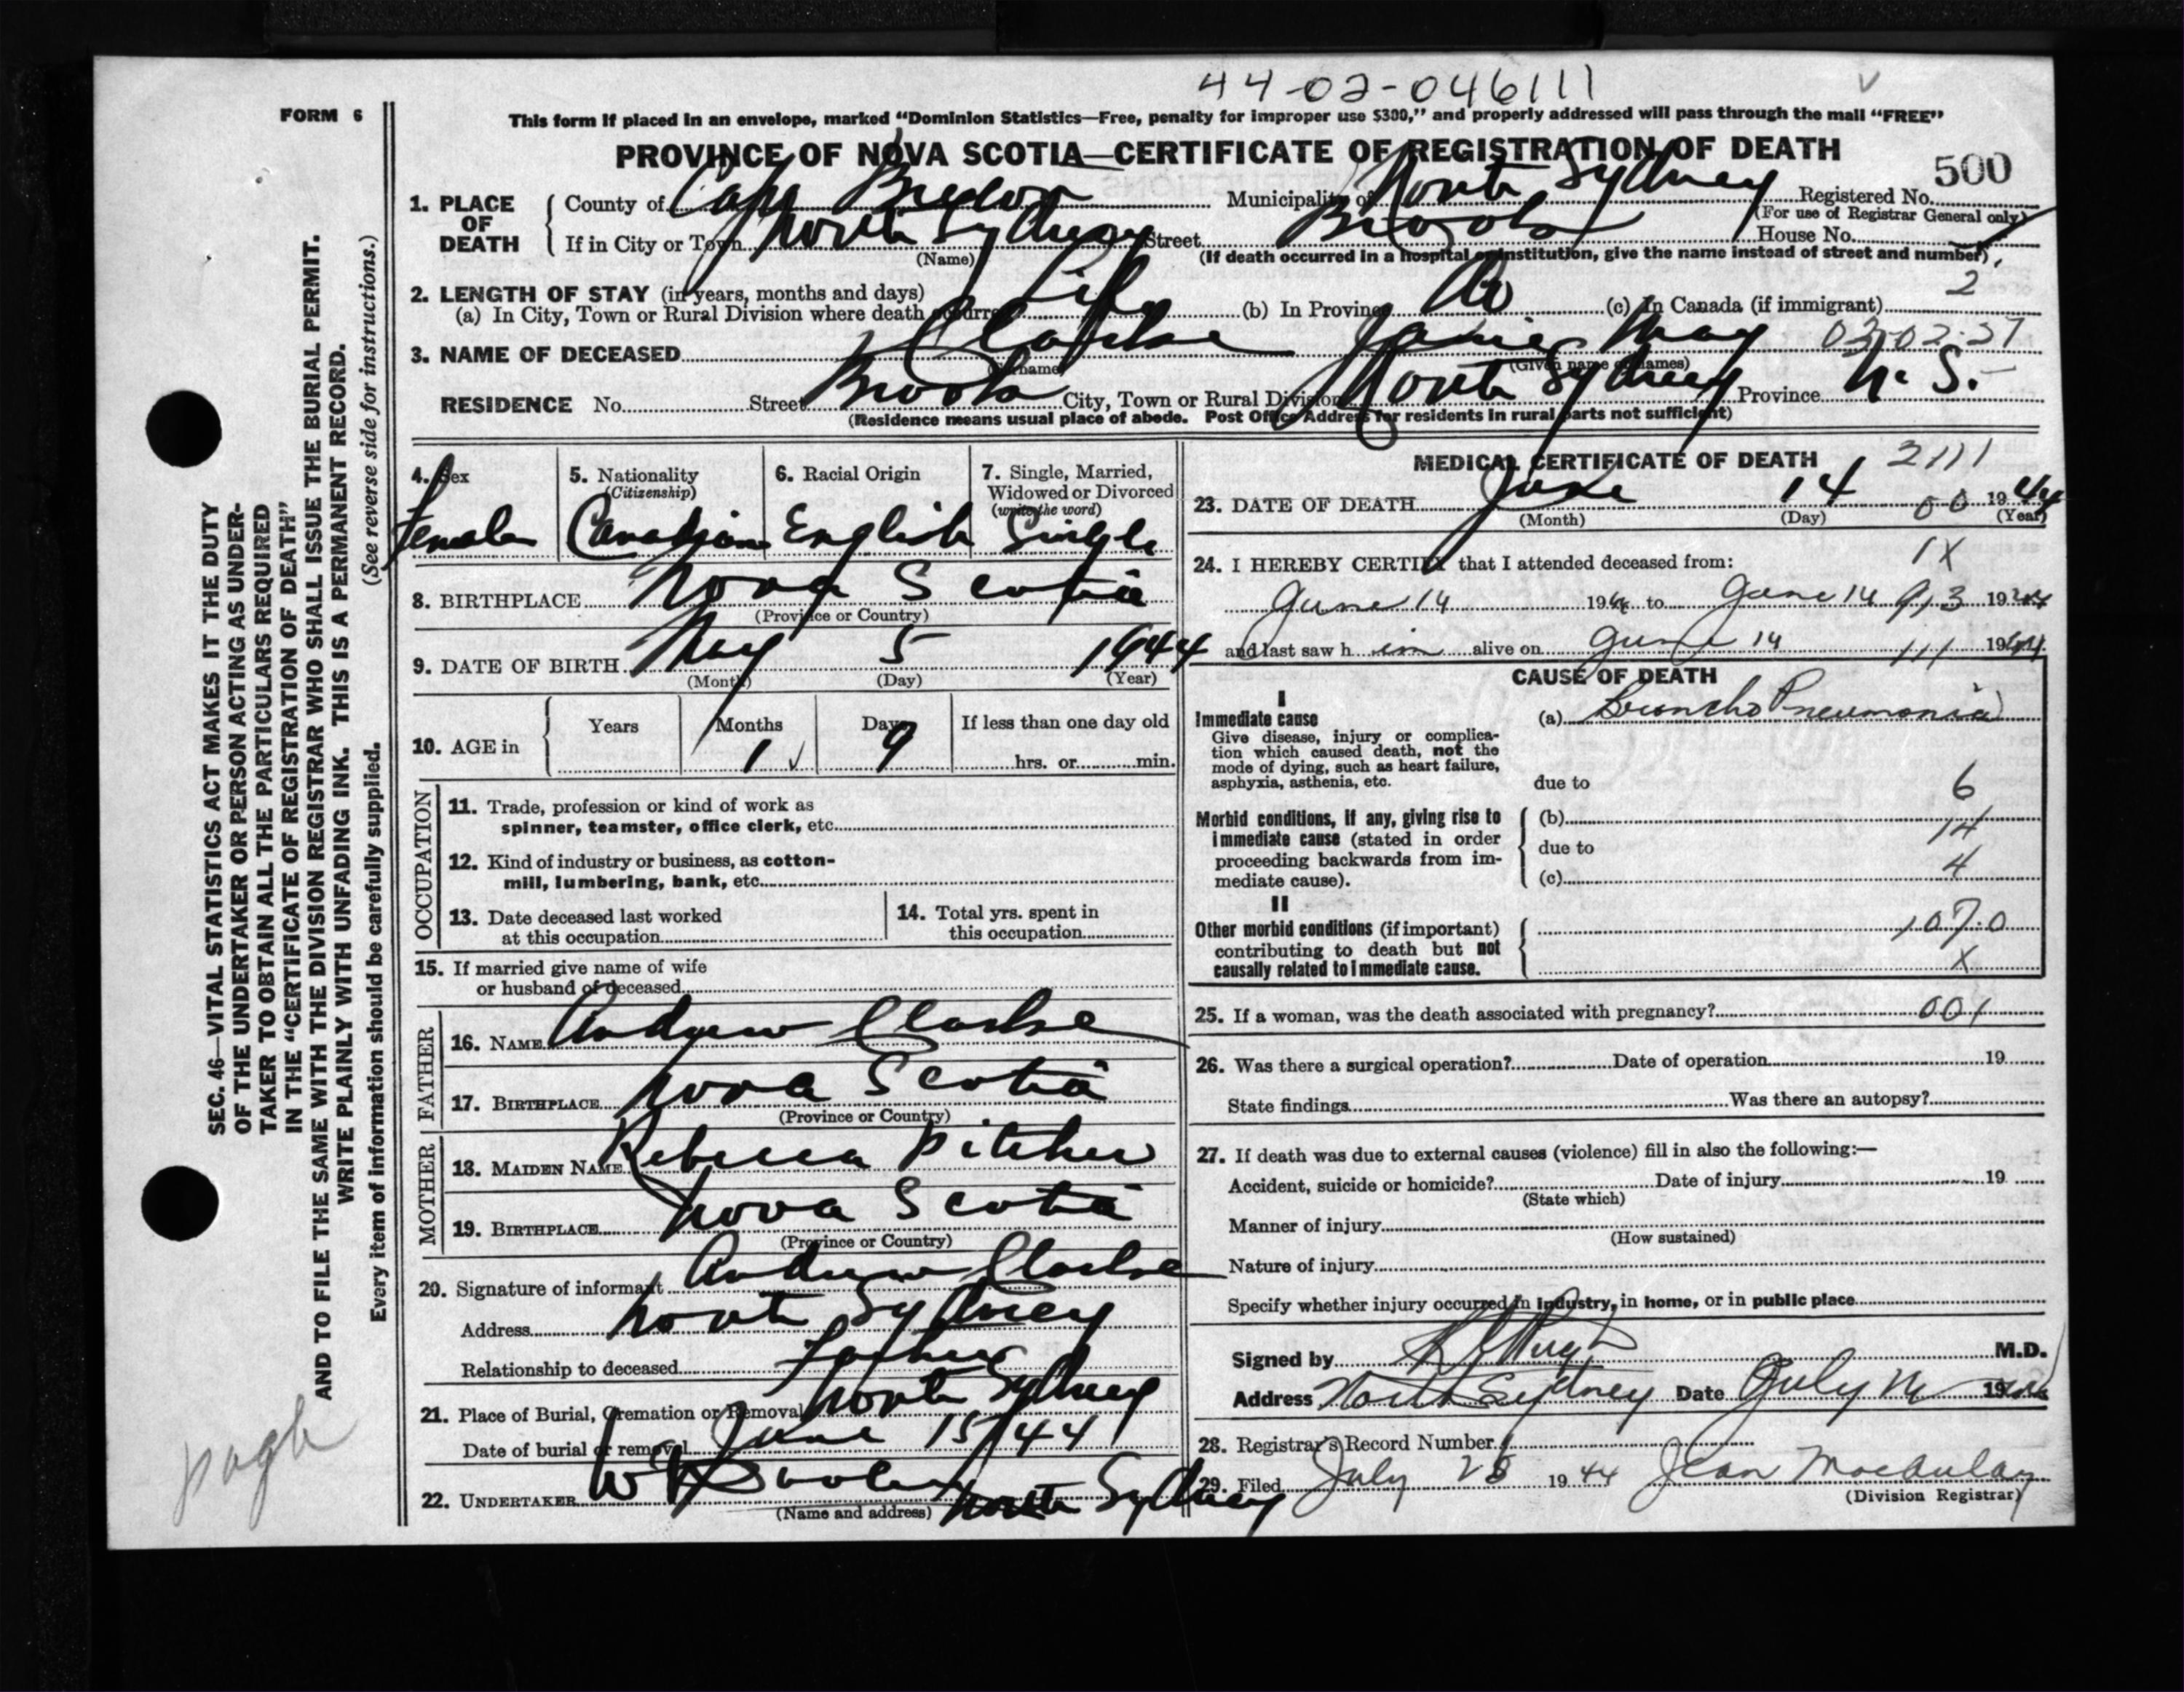 44-02-046111
FORM 6
This form if placed in an envelope, marked “Dominion Statistics—Free, penalty for improper use $300,” and properly addressed will pass through the mail “FREE”
PROVINCE OF NOVA SCOTIA—CERTIFICATE OF REGISTRATION OF DEATH
1. PLACE OF DEATH
County of Cape Breton Municipality of North Sydney Registered No. 500
(For use of Registrar General only)
If in City or Town North Sydney Street Brook House No.
(Name) (If death occurred in a hospital or institution, give the name instead of street and number)
2. LENGTH OF STAY (in years, months and days)
(a) In City, Town or Rural Division where death occurred Life (b) In Province Do (c) In Canada (if immigrant) 2
3. NAME OF DECEASED Clarke Janie May 03-02-27
(Surname) (Given name or names)
RESIDENCE No. Street Brook City, Town or Rural Division North Sydney Province N. S.
(Residence means usual place of abode. Post Office Address for residents in rural parts not sufficient)
4. Sex
Female
5. Nationality
(Citizenship)
Canadian
6. Racial Origin
English
7. Single, Married,
Widowed or Divorced
(write the word)
Single
8. BIRTHPLACE Nova Scotia
(Province or Country)
9. DATE OF BIRTH May 5 1944
(Month) (Day) (Year)
10. AGE in
Years Months Days If less than one day old
1 ✓ 9 hrs. or min.
OCCUPATION
11. Trade, profession or kind of work as
spinner, teamster, office clerk, etc.
12. Kind of industry or business, as cotton-
mill, lumbering, bank, etc.
13. Date deceased last worked
at this occupation
14. Total yrs. spent in
this occupation
15. If married give name of wife
or husband of deceased
FATHER
16. NAME Andrew Clarke
17. BIRTHPLACE Nova Scotia
(Province or Country)
MOTHER
18. MAIDEN NAME Rebecca Pitcher
19. BIRTHPLACE Nova Scotia
(Province or Country)
20. Signature of informant Andrew Clarke
Address North Sydney
Relationship to deceased Father
21. Place of Burial, Cremation or Removal North Sydney
Date of burial or removal June 15/44
22. UNDERTAKER North Sydney
(Name and address)
MEDICAL CERTIFICATE OF DEATH 2111
23. DATE OF DEATH June 14 00 1944
(Month) (Day) (Year)
24. I HEREBY CERTIFY that I attended deceased from: 1X
June 14 1944 to June 14 913 1944
and last saw h im alive on June 14 111 1944
CAUSE OF DEATH
I
Immediate cause
Give disease, injury or complica-
tion which caused death, not the
mode of dying, such as heart failure,
asphyxia, asthenia, etc.
(a) Broncho Pneumonia
due to 6
Morbid conditions, if any, giving rise to
immediate cause (stated in order
proceeding backwards from im-
mediate cause).
(b) 14
due to
(c) 4
II
Other morbid conditions (if important)
contributing to death but not
causally related to immediate cause.
107.0
X
25. If a woman, was the death associated with pregnancy? 001
26. Was there a surgical operation? Date of operation 19
State findings Was there an autopsy?
27. If death was due to external causes (violence) fill in also the following:—
Accident, suicide or homicide? Date of injury 19
(State which)
Manner of injury
(How sustained)
Nature of injury
Specify whether injury occurred in industry, in home, or in public place
Signed by M.D.
Address North Sydney Date July 19
28. Registrar's Record Number
29. Filed July 28 1944 Jean MacAulay
(Division Registrar)
SEC. 46—VITAL STATISTICS ACT MAKES IT THE DUTY
OF THE UNDERTAKER OR PERSON ACTING AS UNDER-
TAKER TO OBTAIN ALL THE PARTICULARS REQUIRED
IN THE “CERTIFICATE OF REGISTRATION OF DEATH”
AND TO FILE THE SAME WITH THE DIVISION REGISTRAR WHO SHALL ISSUE THE BURIAL PERMIT.
WRITE PLAINLY WITH UNFADING INK. THIS IS A PERMANENT RECORD.
Every item of information should be carefully supplied. (See reverse side for instructions.)